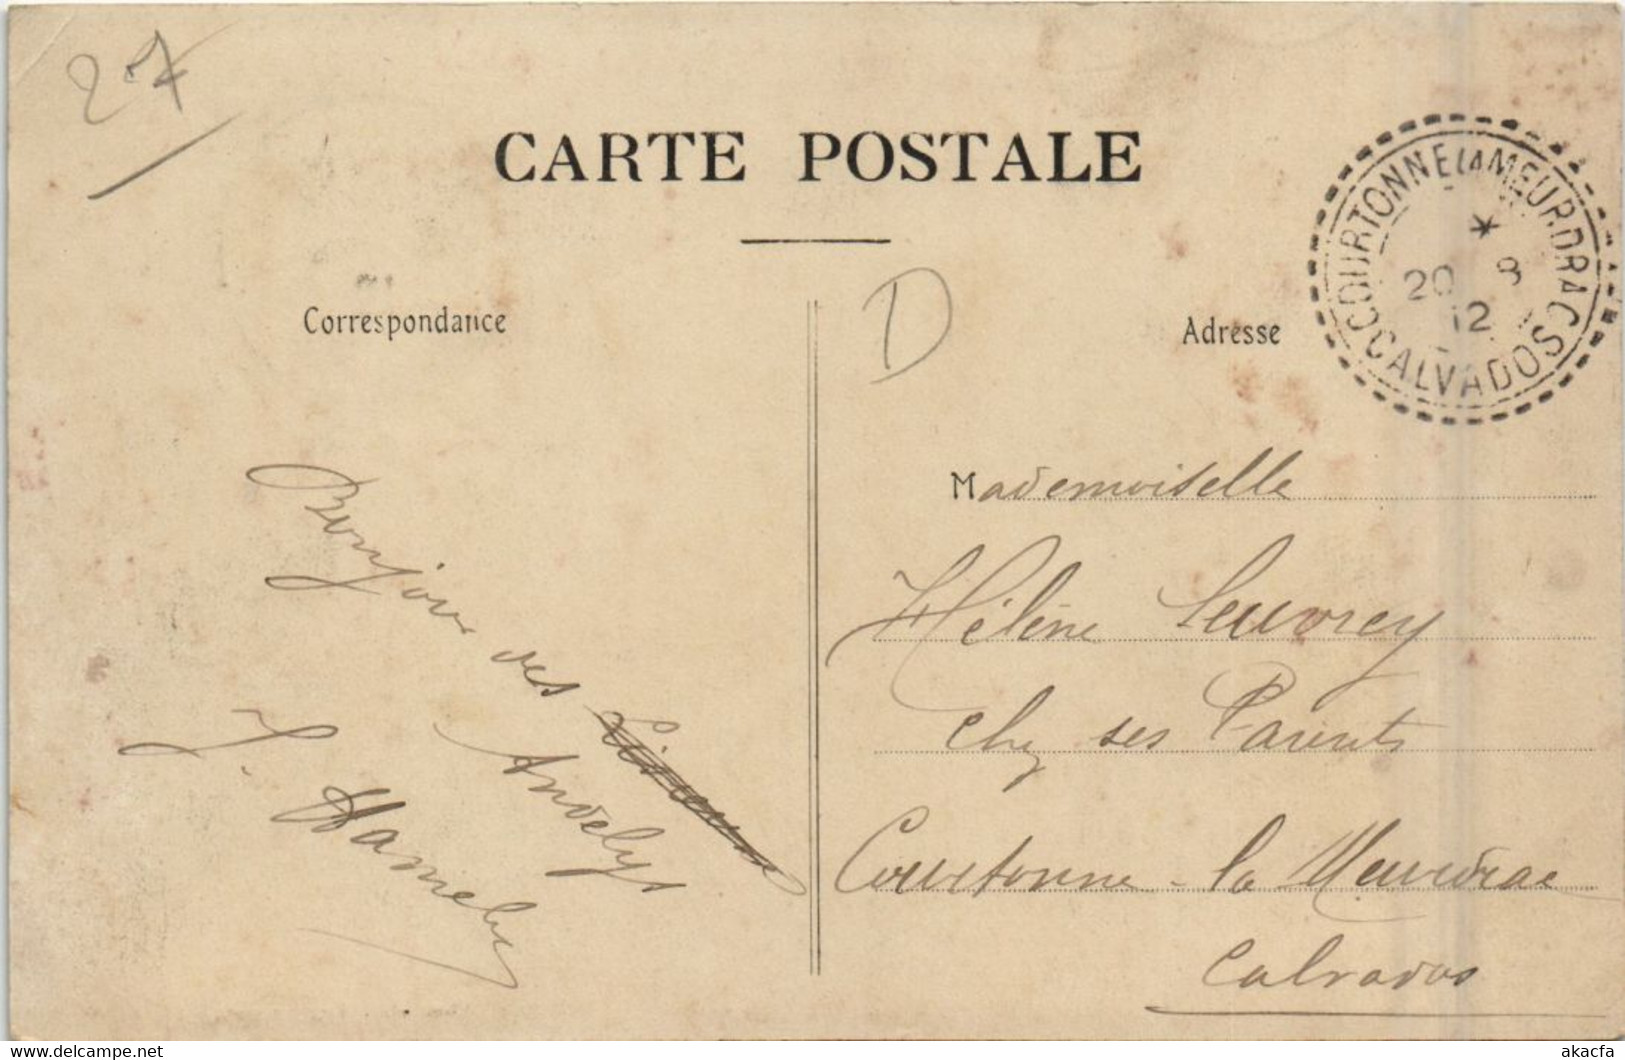 27
CARTE POSTALE
Correspondance
D
Adresse
COURTONNE LA MEURDRAC
20 8
12
CALVADOS
Bonjour des
Andelys
J. Hamel
Mademoiselle
Hélène
chez ses Parents
Courtonne-la Meurdrac
Calvados
akacfa